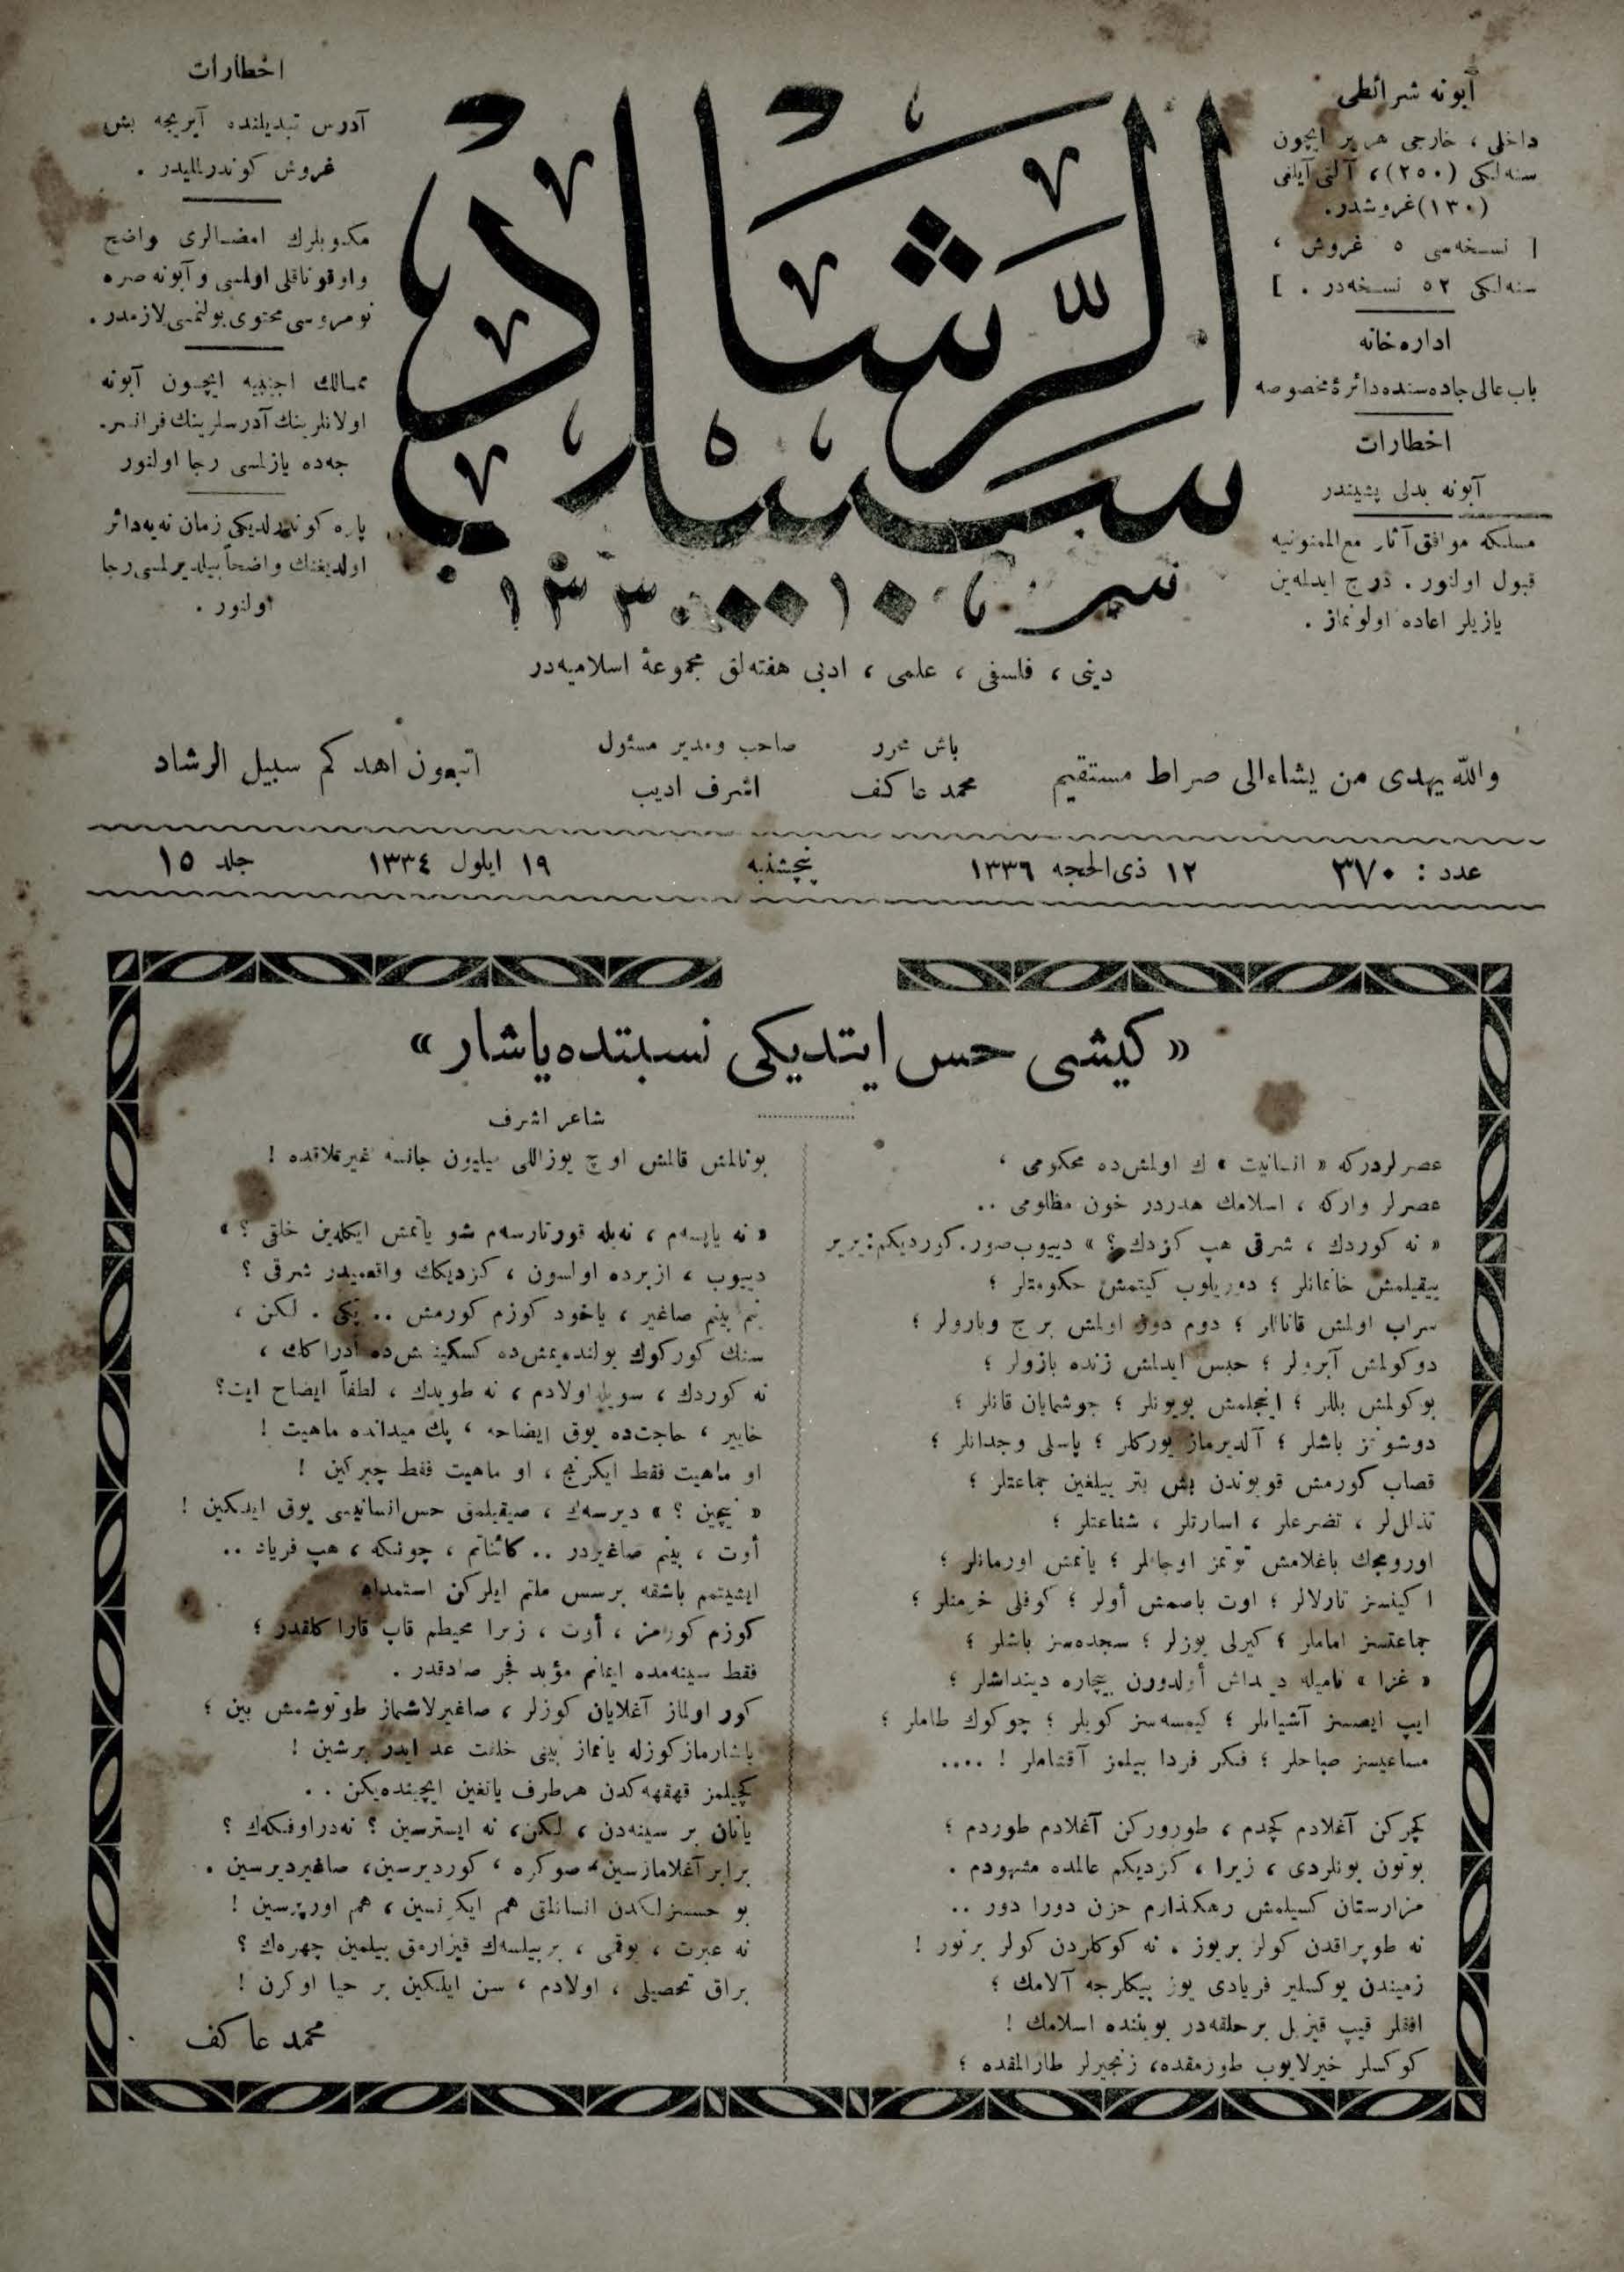 آبونه شرائطی
داخلی ، خارجی هر یر ایچون
سنه‌لكی (٢٥٠) ، آلتی آیلغی
(١٣٠) غروشدر.
[ نسخه‌سی ٥ غروش ،
سنه‌لكی ٥٢ نسخه‌در . ]
اداره‌خانه
باب عالی جاده‌سنده دائرهٔ مخصوصه
اخطارات
آبونه بدلی پشیندر
مسلكه موافق آثار مع الممنونیه
قبول اولنور . درج ایدلمه‌ین
یازیلر اعاده اولونماز .
سبیل الرشاد
١٣٣٠
اخطارات
آدرس تبدیلنده آیریجه بش
غروش كوندرلملیدر .
مكتوبلرك امضالری واضح
و اوقوناقلی اولمسی و آبونه صره
نومروسی محتوی بولنمسی لازمدر .
ممالك اجنبیه ایچون آبونه
اولانلرینك آدرسلرینك فرانسز-
جه‌ده یازلمسی رجا اولنور
پاره كوندرلدیكی زمان نه‌یه دائر
اولدیغنك واضحاً بیلدیرلمسی رجا
اولنور .
دینی ، فلسفی ، علمی ، ادبی هفته‌لق مجموعهٔ اسلامیه‌در
والله یهدی من یشاء الی صراط مستقیم
باش محرر
محمد عاكف
صاحب ومدیر مسئول
اشرف ادیب
اتبعون اهدكم سبیل الرشاد
عدد : ٣٧٠ ١٢ ذی الحجه ١٣٣٦ پنجشنبه ١٩ ایلول ١٣٣٤ جلد ١٥
« كیشی حس ایتدیكی نسبتده یاشار »
شاعر اشرف
عصرلردركه « انسانیت » ك اولمش‌ده محكومی ،
عصرلر واركه ، اسلامك هدردر خون مظلومی ..
« نه كوردك ، شرقی هپ كزدك ؟ » دییوب صور. كوردیكم: یر یر
ییقیلمش خانمانلر ؛ دوریلوب كیتمش حكومتلر ؛
سراب اولمش قاناللر ؛ دوم دوز اولمش برج وبارولر ؛
دوكولمش آبرولر ؛ حبس ایدلمش زنده بازولر ؛
بوكولمش بللر ؛ اینجلمش بویونلر ؛ جوشمایان قانلر ؛
دوشونمز باشلر ؛ آلدیرماز یوركلر ؛ پاسلی وجدانلر ؛
قصاب كورمش قویوندن بش بتر ییلغین جماعتلر ؛
تذللر ، تضرعلر ، اسارتلر ، شناعتلر ؛
اورومجك باغلامش توتمز اوجاقلر ؛ یانمش اورمانلر ؛
اكینسز تارلالر ؛ اوت باصمش أولر ؛ كوفلی خرمنلر ؛
جماعتسز اماملر ؛ كیرلی یوزلر ؛ سجده‌سز باشلر ؛
« غزا » نامیله دینداش أولدورن بیچاره دینداشلر ؛
ایپ ایصسز آشیانلر ؛ كیمسه‌سز كویلر ؛ چوكوك طاملر ؛
مساعیسز صباحلر ؛ فكر فردا بیلمز آقشاملر ! ....
كچركن آغلادم كچدم ، طوروركن آغلادم طوردم ؛
بوتون بونلردی ، زیرا ، كزدیكم عالمده مشهودم .
مزارستان كسیلمش رهكذارم حزن دورا دور ..
نه طوپراقدن كولر بر یوز ، نه كوكلردن كولر بر نور !
زمیندن یوكسلیر فریادی یوز بیكلرجه آلامك ؛
افقلر قیپ قیزیل بر حلقه‌در بویننده اسلامك !
كوكسلر خیرلایوب طورمقده، زنجیرلر طارالمقده ؛
بوناﻟمش قالمش اوچ یوز اللی میلیون جانسه غیرتلاقده !
« نه یاپسه‌م ، نه‌یله قورتارسه‌م شو یانمش ایكله‌ین خلقی ؟ »
دییوب ، ازبرده اولسون ، كزدیكك واقعمیدر شرقی ؟
بنم بینم صاغیر ، یاخود كوزم كورمش .. پكی . لكن ،
سنك كورﮔوك بولنده‌یمش‌ده كسكینمش‌ده أدراكك ،
نه كوردك ، سویله اولادم ، نه طویدك ، لطفاً ایضاح ایت؟
خایر ، حاجت‌ده یوق ایضاحه ، پك میدانده ماهیت !
او ماهیت فقط ایكرنج ، او ماهیت فقط چیركین !
« نیچین ؟ » دیرسه‌ك ، صیقیلمق حس انسانیسی یوق ایلكین !
أوت ، بینم صاغیردر .. كائناتم ، چونكه ، هپ فریاد ..
ایشیتمم باشقه بر سس ملتم ایلركن استمداد
كوزم كورمز ، أوت ، زیرا محیطم قاپ قارا كلقدر ؛
فقط سینه‌مده ایمانم مؤبد فجر صادقدر .
كور اولماز آغلایان كوزلر ، صاغیرلاشماز طوتوشمش بین ؛
یاشارماز كوزله یانماز بینی خلقت عد ایدر بر شین !
كچیلمز قهقهه‌كدن هر طرف یانغین ایچینده‌یكن ..
یانان بر سینه‌دن ، لكن، نه ایسترسین ؟ نه‌در اوفكه‌ك ؟
برابر آغلامازسین ، صوكره ، كوردیرسین، صاغیردیرسین .
بو حسسزلكدن انسانلق هم ایكرنسین ، هم اورپرسین !
نه عبرت ، یوقمی ، بر بیلسه‌ك قیزارمق بیلمین چهره‌ك ؟
براق تحصیلی ، اولادم ، سن ایلكین بر حیا اوكرن !
محمد عاكف